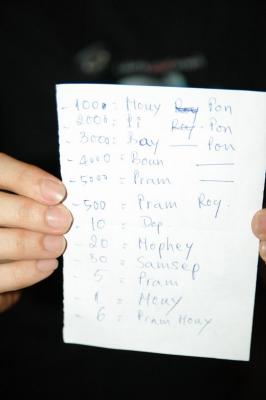 - 1000 = Mouy Pon
- 2000 = Pi Pon
- 3000 = Bay — Pon
- 4000 = Boun —
- 5000 = Pram —
- 500 = Pram Roy.
- 10 = Dop.
- 20 = Mophey
- 30 = Samsep
- 5 = Pram
- 1 = Mouy
- 6 = Pram Mouy